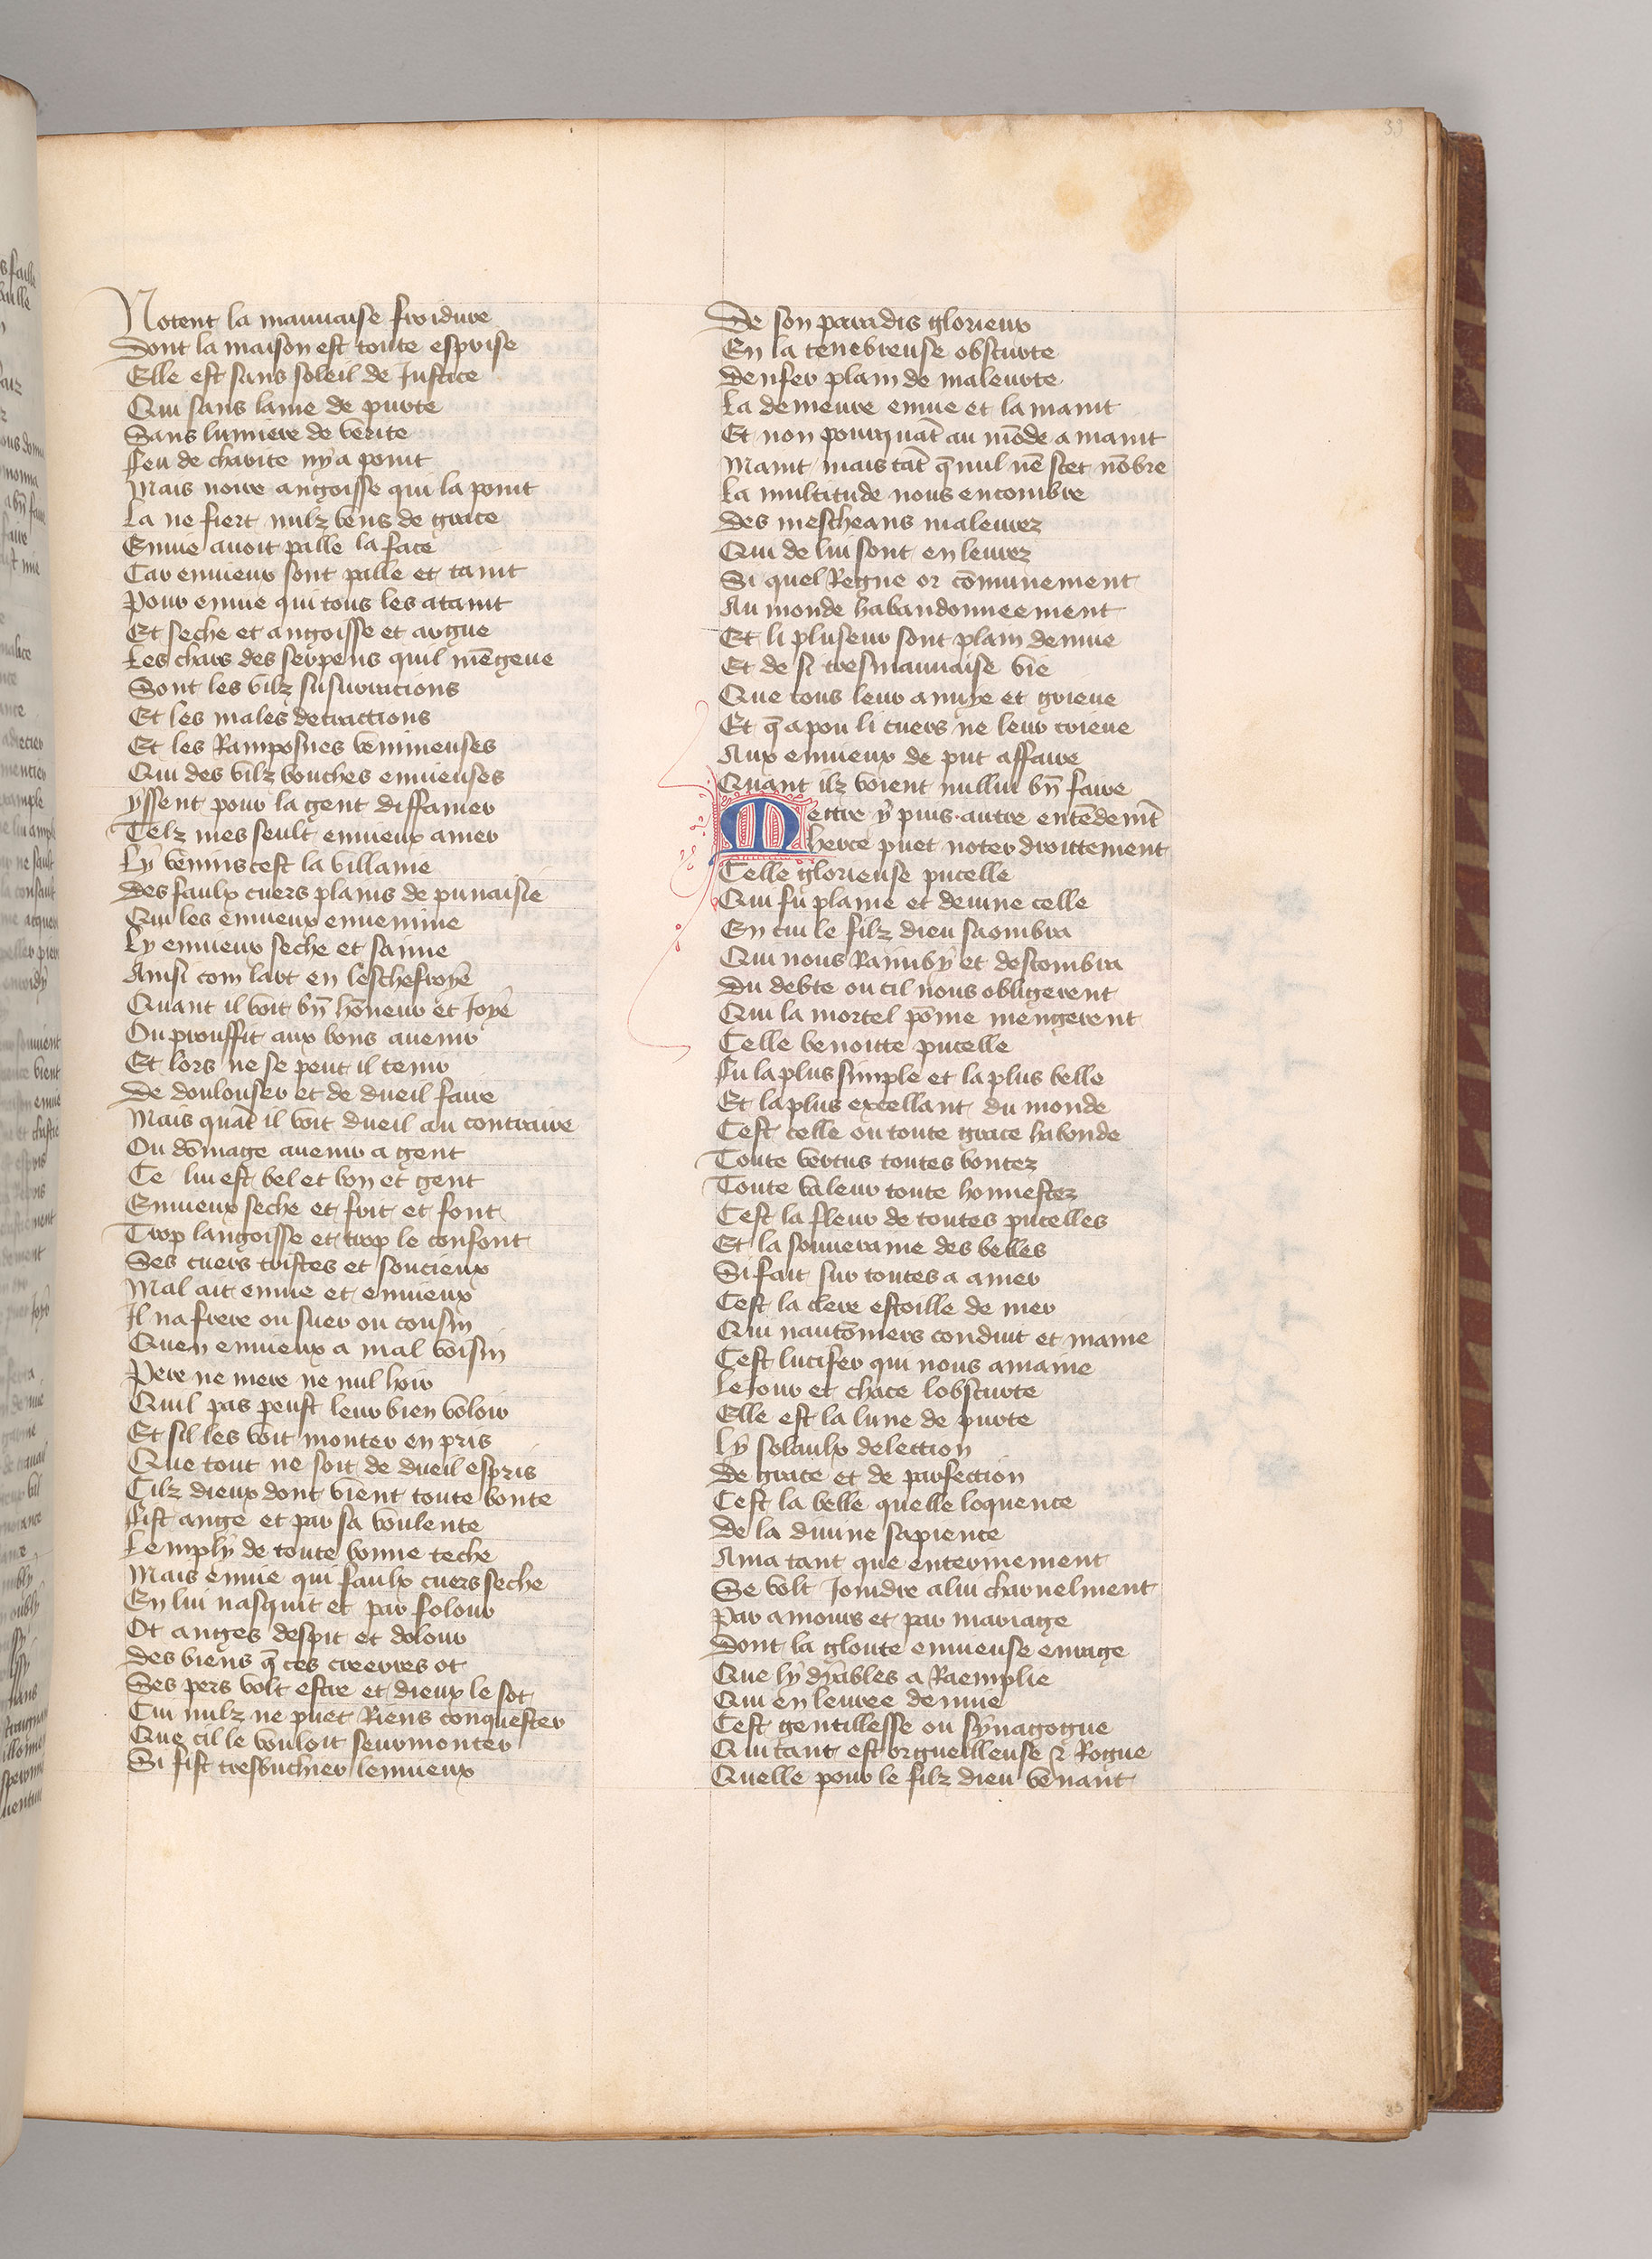 Notent la mauuaise froidure
Dont la maison est toute esprise
Elle est sans soleil de Justice
Qui sans lame de purte
Sans lumiere de verite
Feu de charite ny a point
Mais noire angoisse qui la point
La ne fiert nulz vens de grace
Enuie auoit palle la face
Car enuieux sont palle et taint
Pour enuie qui tous les ataint
Et seche et angoisse et argue
Les chars des serpens quil mēgeue
Sont les vilz susurracions
Et les males detractions
Et les Ramposnes venimeuses
Qui des vilz bouches enuieuses
yssent pour la gent diffamer
Telz mes seult enuieux amer
Ly venins cest la villanie
Des faulx cuers plains de punaisie
Qui les enuieux enuenime
Ly enuieux seche et
Ainsi com lart en leschefroye
Quant il voit bn̄ hōneur et Joye
Ou prouffit aux bons auenir
Et lors ne se peut il tenir
De doulouser et de dueil faire
Mais quāt il voit dueil au contraire
Ou dōmage auenir a gent
Ce lui est bel et bon et gent
Enuieux seche et frit et font
Trop langoisse et trop le confont
Ses cuers tristes et soucieux
Mal ait enuie et enuieux
Il na frere ou suer ou cousin
Quen enuieux a mal voisin
Pere ne mere ne nul hoir
Quil pas peust leur bien voloir
Et sil les voit monter en pris
Que tout ne soit de dueil espris
Cilz dieux dont vient toute bonte
Fist ange et par sa voulente
Lemply de toute bonne teche
Mais enuie qui faulx cuers seche
En lui nasquit et par folour
Ot anges despit et dolour
Des biens q̄ ces creerres ot
Ses pers volt estre et dieux le sot
Cui nulz ne puet Riens conquester
Que cil le vouloit seurmonter
Si fist tresbuchier lenuieux
De son paradis glorieux
En la tenebreuse obscurte
Denfer plain de maleurte
La demeure enuie et la maint
Et non pourquāt au mōde a maint
Maint mais tāt q̄ nul nē scet nōbre
La multitude nous encombre
Des mescheans maleurez
Qui de lui sont enleurez
Si quel Regne or cōmunement
Au monde habandonneement
Et li pluseur sont plain denuie
Et de si tresmauuaise vie
Que tous leur anuye et grieue
Et q̄ a pou li cuers ne leur crieue
Aux enuieux de put affaire
Quant ilz voient nullui bn̄ faire
Mettre y puis autre entēdemēt
herce puet noter droittement
Celle glorieuse pucelle
Qui fu plaine et deuine celle
En cui le filz dieu saombra
Qui nous Raimby et descombra
Du debte ou cil nous obligerent
Qui la mortel pōme mengerent
Celle benoitte pucelle
Fu la plus simple et la plus belle
Et la plus excellant du monde
Cest celle ou toute grace habonde
Toute vertus toutes bontez
Toute valeur toute honnestez
Cest la fleur de toutes pucelles
Et la souueraine des belles
Si fait sur toutes a amer
Cest la clere estoille de mer
Qui nautōniers conduit et maine
Cest lucifer qui nous amaine
Le Jour et chace lobscurte
Elle est la lune de purte
Ly solaulx delection
De grace et de parfection
Cest la belle quelle loquence
De la diuine sapience
Ama tant que enterinement
Se volt Joindre a lui charnelment
Par amours et par mariage
Dont la gloute enuieuse enrage
Que ly dyables a Raemplie
Qui enleuree denuie
Cest gentillesse ou synagogue
Qui tant est orgueilleuse & Rogue
Quelle pour le filz dieu venant